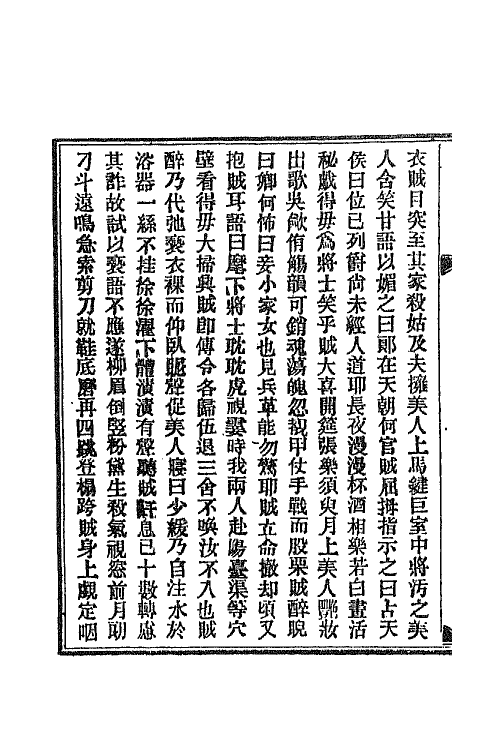 衣賊目突至其家殺姑及夫擁美人上馬鍵巨室中將污之美
人含笑甘語以媚之曰郎在天朝何官賊屈拇指示之曰占天
侯曰位已列爵尙未經人道耶長夜漫漫杯酒相樂若白晝活
秘戲得毋爲將士笑乎賊大喜開筵張樂須臾月上美人艷妝
出歌吳歈侑觴韻可銷魂蕩魄忽親甲仗手戰而股栗賊醉睨
曰卿何怖曰妾小家女也見兵革能勿驚耶賊立命撤却頃又
抱賊耳語曰麾下將士耽耽虎視霎時我兩人赴陽臺渠等穴
壁看得毋大掃興賊卽傳令各歸伍退三舍不喚汝不入也賊
醉乃代弛褻衣裸而仰臥暱聲促美人寢曰少緩乃自注水於
浴器一絲不挂徐徐濯下體湞湞有聲聽賊鼾息已十數轉慮
其詐故試以褻語不應遂柳眉倒竪粉黛生殺氣視窓前月朗
刁斗遠鳴急索剪刀就鞋底磨再四跳登榻跨賊身上覷定咽